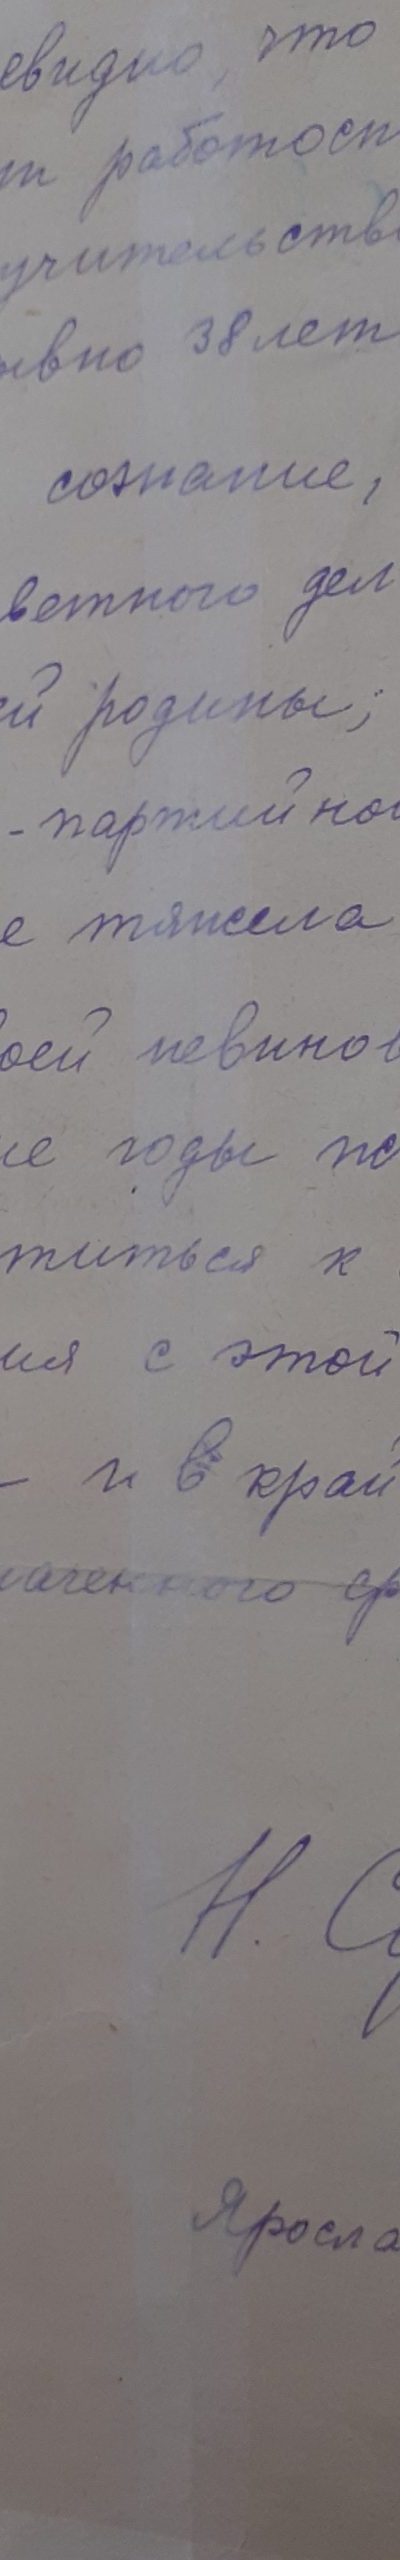 евидно, что
т работосп
учительств
ывно 38 лет
сознание,
ветного дел
ей родины;
-партийной
е тяжела
воей невинов
ие годы жс
титься к
ия с этой
- и в край
наченного ср
Н. С
Яросла